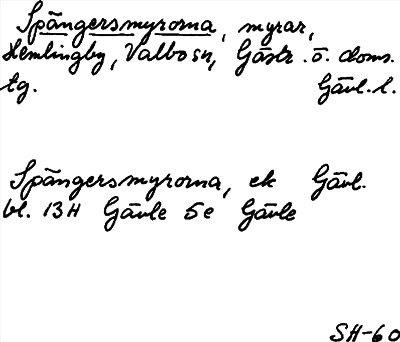 Spängersmyrorna, myrar,
Hemlingby, Valbo sn, Gästr. ö. doms.
tg. Gävl. l.
Spängersmyrorna, ek Gävl.
bl. 13H Gävle 5e Gävle
SH-60